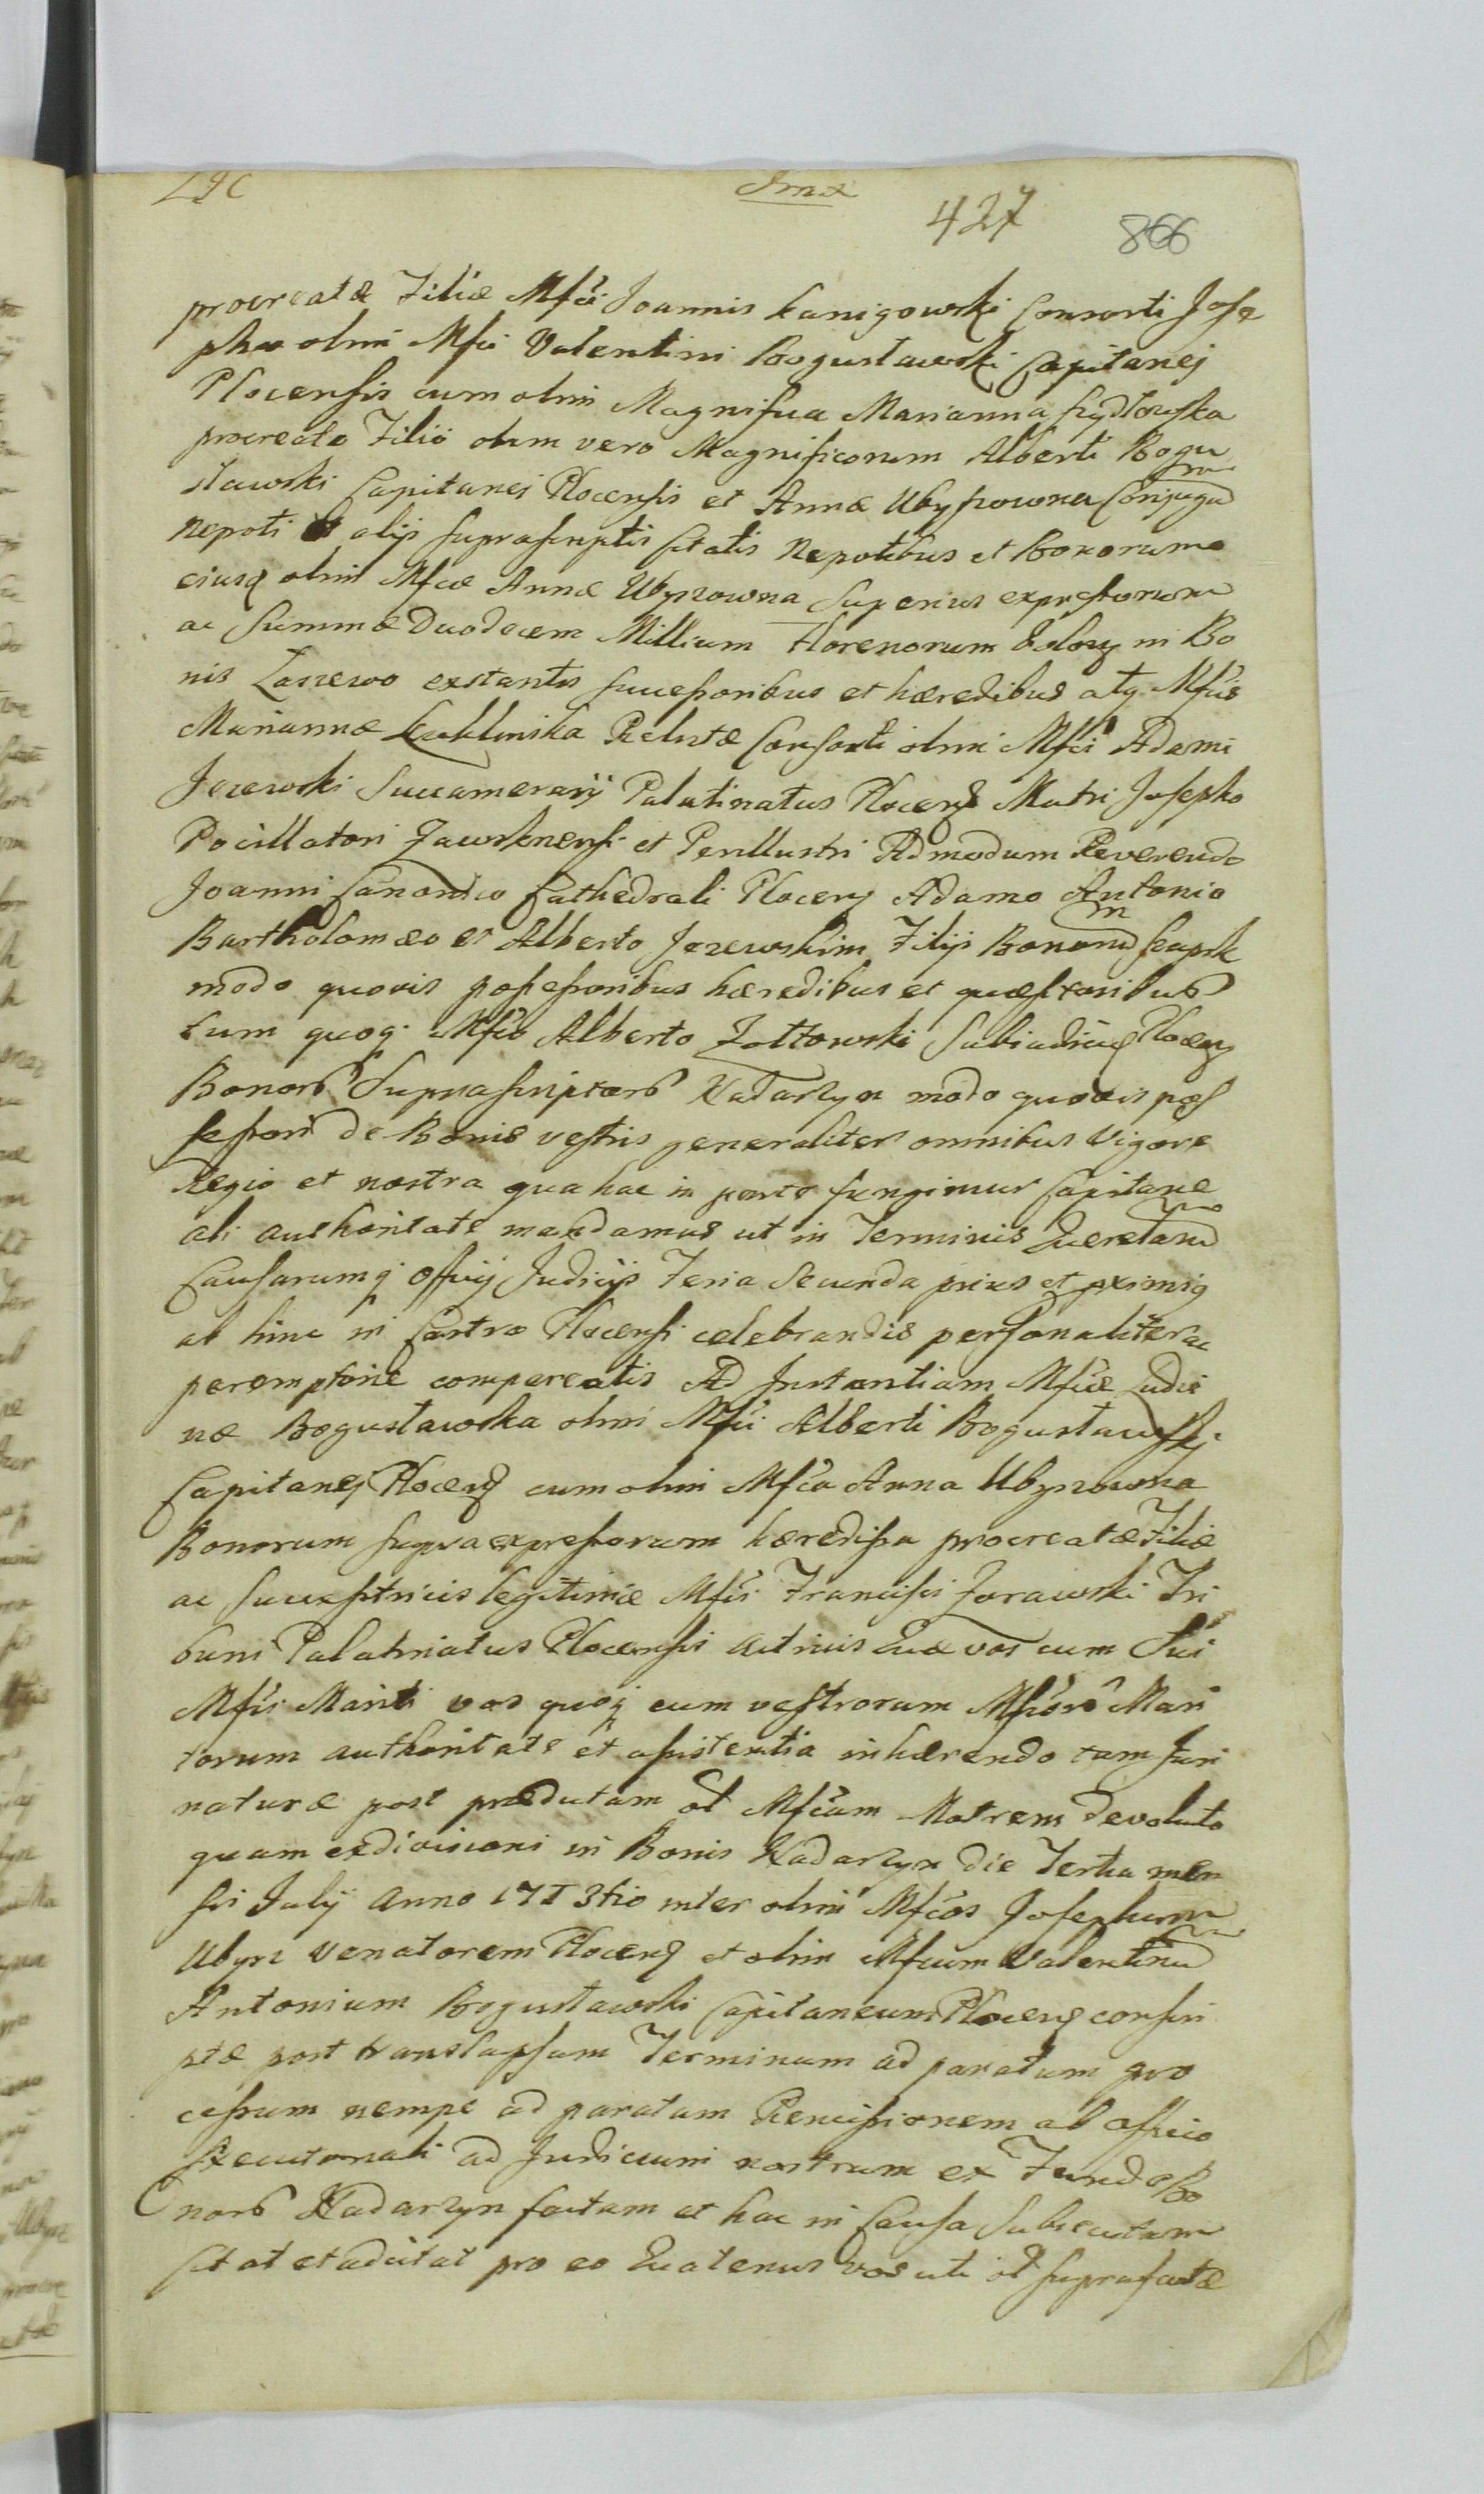 427 866
procreatæ Filiæ Mfci Joannis Kanigowski Consorti Jose
pho olim Mfci Valentini Bogusławski Capitanej
Plocensis cum olim Magnifica Marianna Szydłowska
procreato Filio olim vero Magnificorum Alberti Bogu
sławski Capitanei Plocensis et Annæ Ubyszowna Conjugum
Nepoti et alijs suprascriptis citatis Nepotibus et Bonorum
eiusq olim Mfcæ Annæ Ubyszowna superius expressorum
ac Summæ Duodecem Millium Florenorum Polon in Bo
nis Łaszewo exstantis successoribus et hæredibus atq Mfcis
Mariannæ Kuklinska Relictæ Consorti olim Mfci Adami
Jezewski Succamerarij Palatinatus Plocens Matri Josepho
Pocillatori Zawskrnensi et Perillustri Admodum Reverendo
Joanni Canonico Cathedrali Plocens Adamo Antonio
Bartholomæo et Alberto Jezewskim Filijs Bonorum
modo quovis possessoribus hæredibus et quæstoribus
tum quoq Mfco Alberto Zołtowski Subiudici Plocens
Bonor Suprascriptor Nadarzyn modo quovis pos
sessori de Bonis vestris generaliter omnibus Vigore
Regio et nostra qua hac in parte fungimur Capitane
ali authoritate mandamus ut in Terminis Querelarum
Causarumq Officij Judicijs Feria Secunda prius et proximis
ab hinc in Castro Plocensi celebrandis personaliter ac
peremptorie compereatis Ad Instantiam Mfcæ Ludvi
næ Bogusławska olim Mfci Alberti Bogusławskj
Capitanej Plocens cum olim Mfca Anna Ubyszowna
Bonorum supra expressorum hæredissa procreatæ Filiæ
ac successtricis legitimæ Mfci Francisci Zorawski Tri
buni Palatinatus Plocensis Actricis Quæ vos cum Sui
Mfci Mariti vos quoq cum vestrorum Mficor Mari
torum authoritate et assistentia inhærendo tam Juri
naturæ post prædictam ol Mfcam Matrem devoluto
quam exdivisioni in Bonis Nadarzyn die Tertia men
sis Julij Anno 1713tio inter olim Mfcos Josephum
Ubysz Venatorem Plocens et olim Mfcum Valentinum
Antonium Bogusławski Capitaneum Plocens conscri
ptæ post translapsum Terminum ad paratum pro
cessum nempe ad paratam Remissionem ab officio
Executoriali ad Judicium nostrum ex Fundo Bo
nor Nadarzyn factam et hac in Causa Subsecutam
citat et adcitat pro eo Quatenus vos uti ol suprafatæ